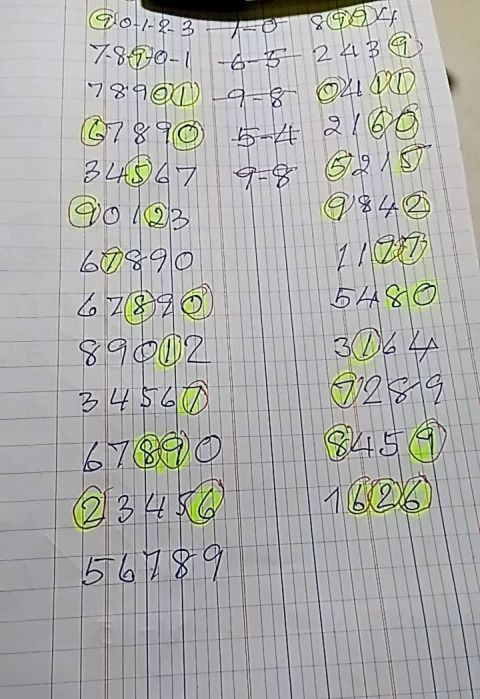 9-0-1-2-3 1-0 8994
7-8-9-0-1 6-5 2439
78901 9-8 0411
67890 5-4 2160
34567 9-8 5215
90123 9842
67890 1177
67890 5480
89012 3164
34567 7289
67890 8459
23456 1626
56789